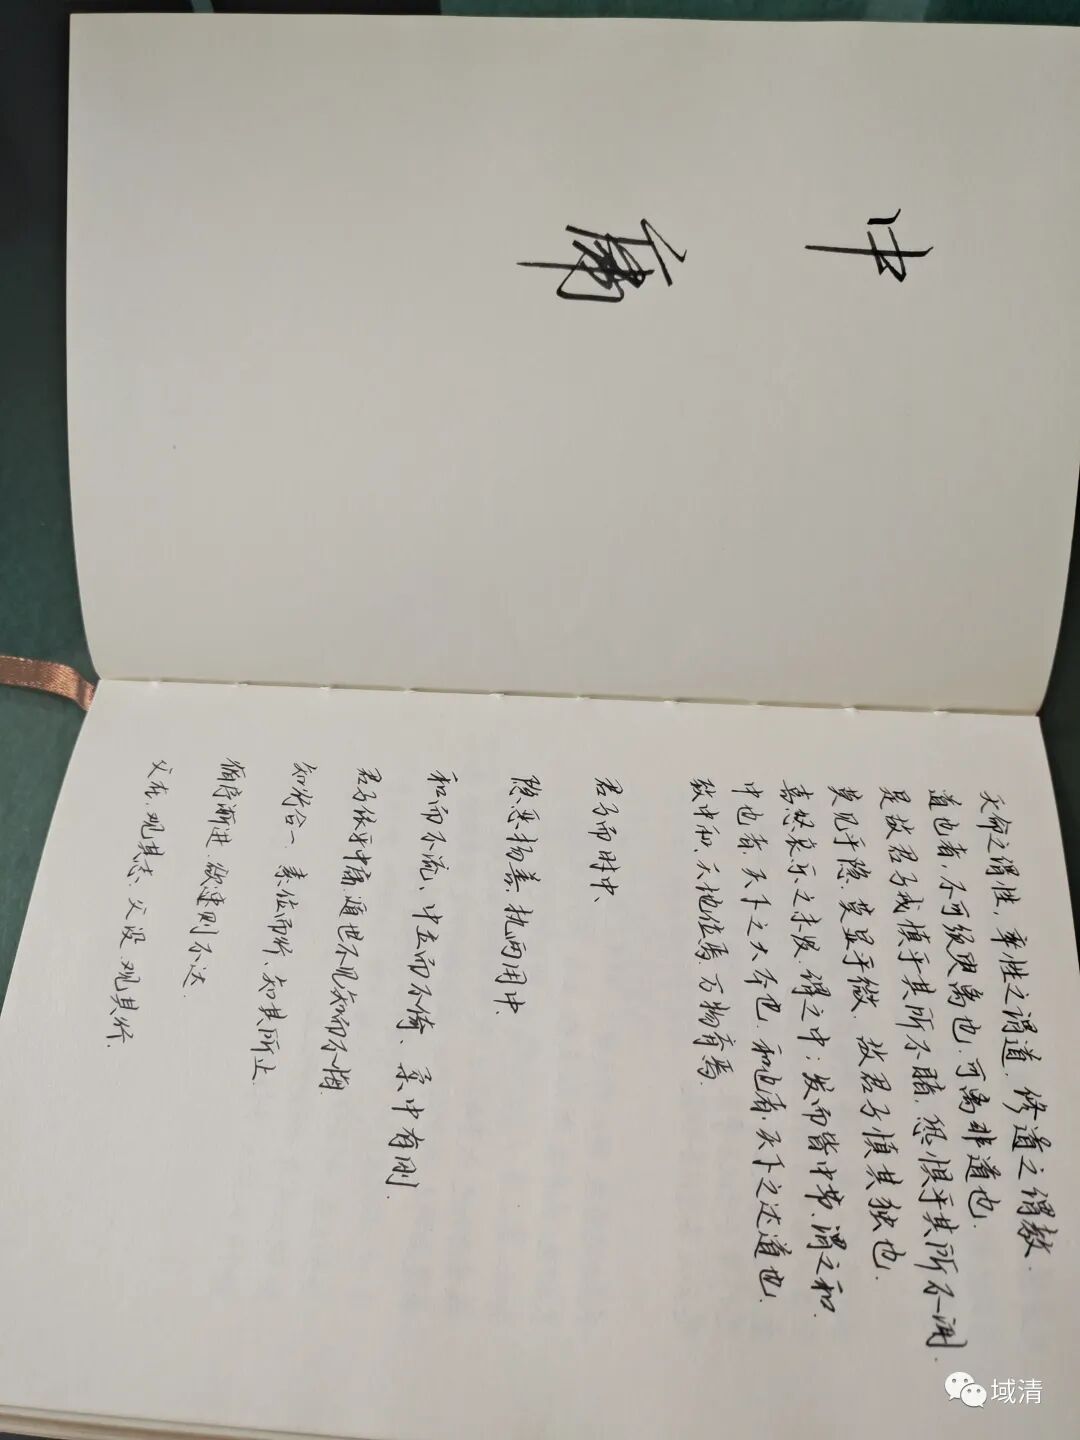 中
庸
天命之谓性，率性之谓道，修道之谓教．
道也者，不可须臾离也，可离非道也．
是故君子戒慎乎其所不睹，恐惧乎其所不闻．
莫见乎隐，莫显乎微．故君子慎其独也．
喜怒哀乐之未发，谓之中；发而皆中节，谓之和．
中也者，天下之大本也．和也者，天下之达道也．
致中和，天地位焉，万物育焉．
君子而时中、
隐恶扬善，执两用中．
和而不流、中立而不倚、柔中有刚．
君子依乎中庸，遁世不见知而不悔．
知行合一、素位而行、知其所止．
循序渐进、欲速则不达．
父在，观其志、父没，观其行．
域清